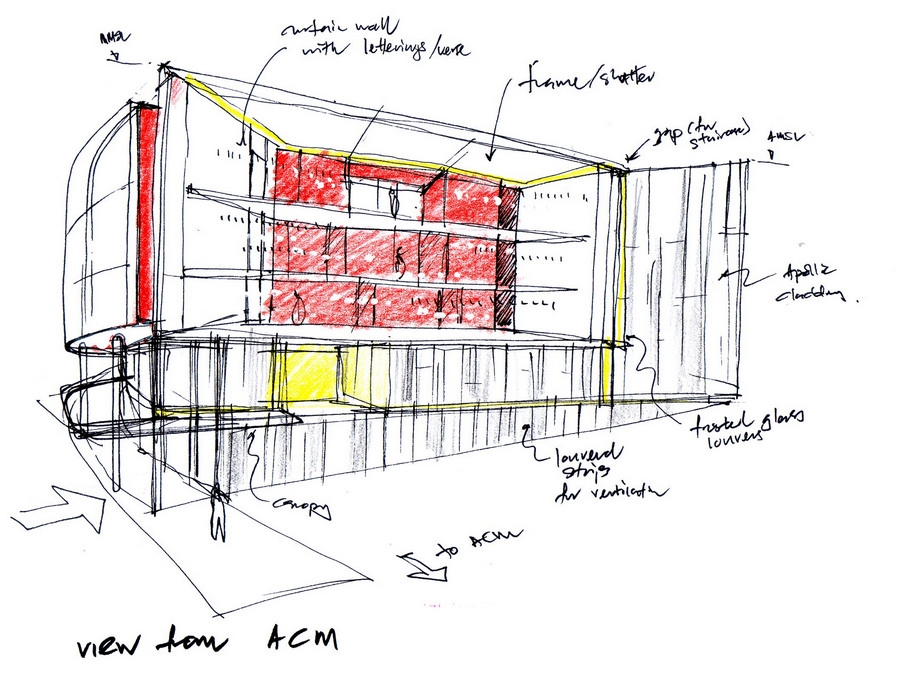 AMSL
curtain wall
with letterings/verse
frame/shutter
gap (for
staircase)
AMSL
Apollo
cladding.
frosted glass
louvers
louvered
strips
for ventilation
canopy
to ACM
view from ACM